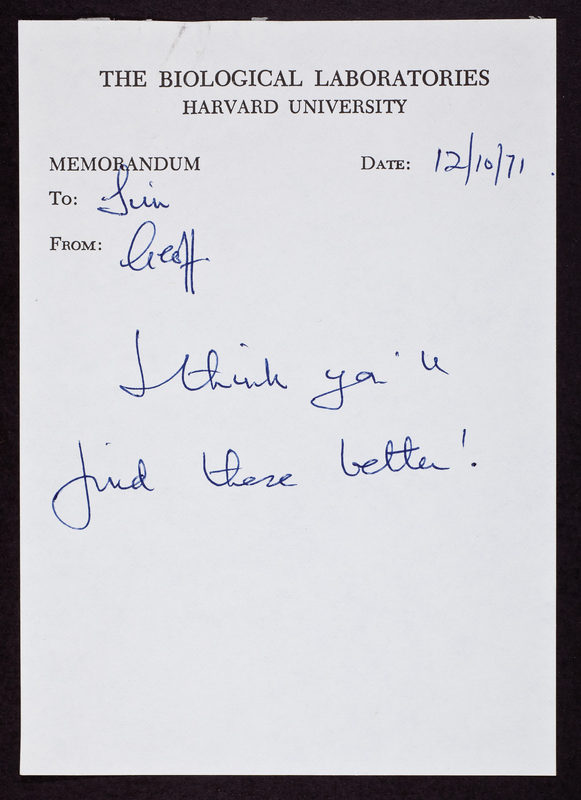 THE BIOLOGICAL LABORATORIES
HARVARD UNIVERSITY
MEMORANDUM DATE: 12/10/71.
TO: Jim
FROM: Geoff
I think you'll
find these better!